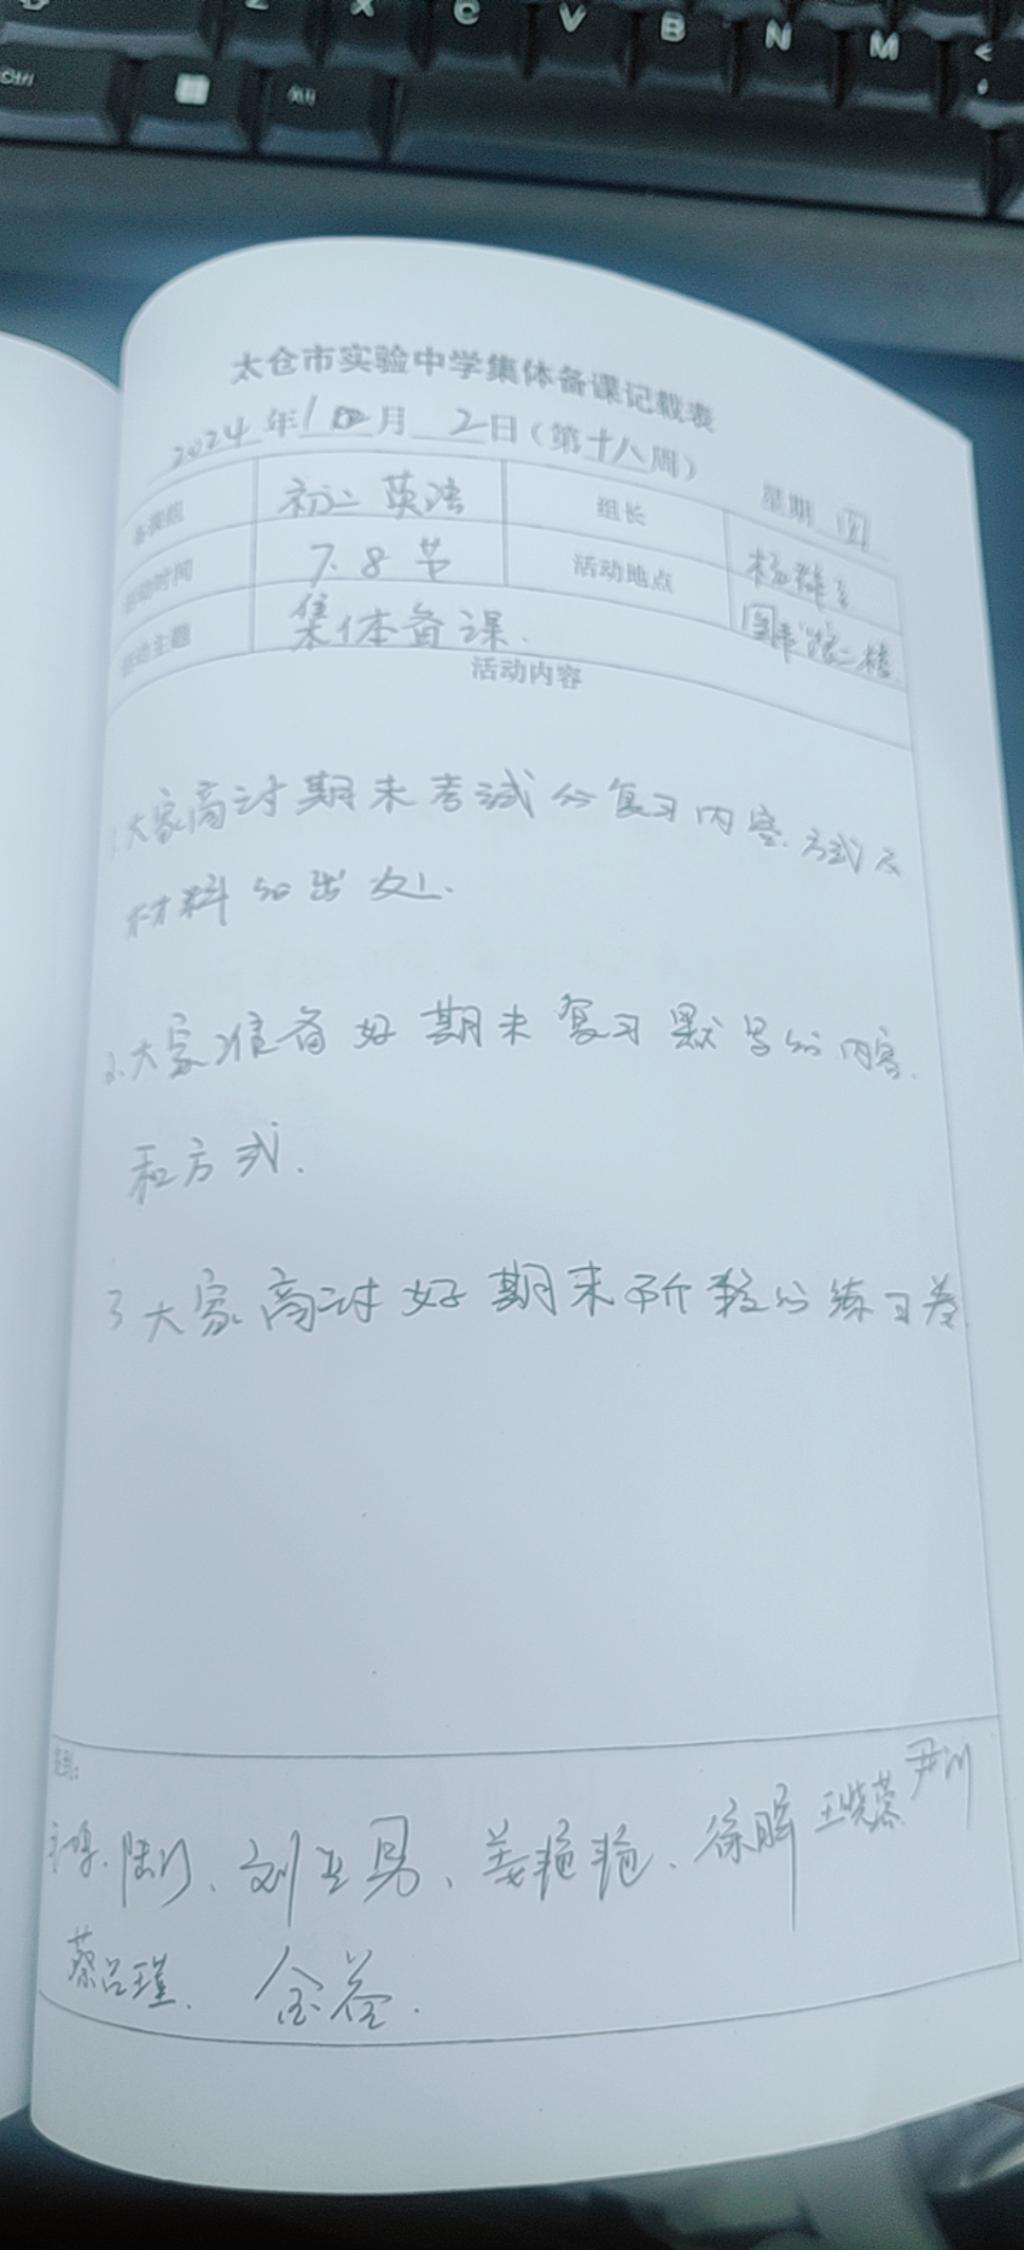 Z X C V B N M <
Ctrl
太仓市实验中学集体备课记载表
2024年1月2日（第十八周） 星期四
备课组 初二英语 组长
活动时间 7.8节 活动地点
活动主题 集体备课.
活动内容
1.大家商讨期末考试的复习内容.方式及
材料的出处.
2.大家准备好期末复习默写的内容.
和方式.
3 大家商讨好期末所教的练习卷.
签到:
陆 、刘 男、姜艳艳、徐晖 王晓蓉 尹
蔡吕瑾. 金